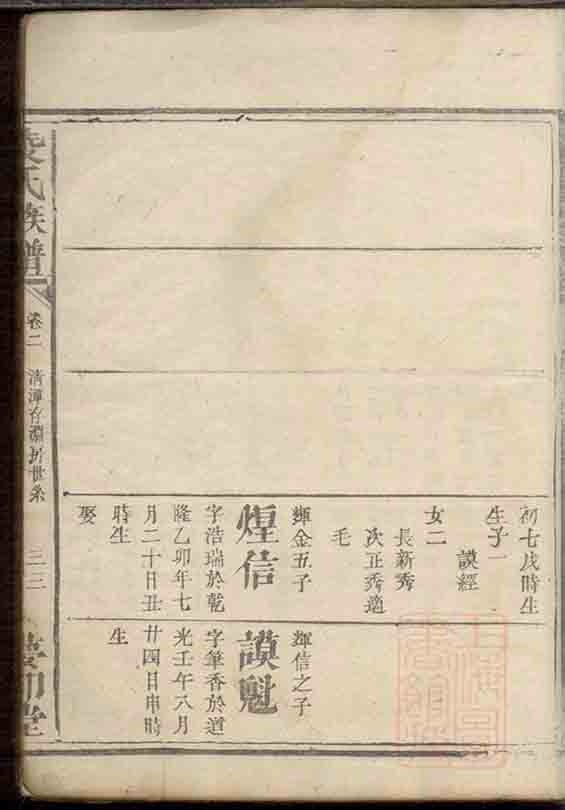 初七戌時生
生子一
謨經
女二
長新秀
次正秀適
毛
輝金五子
煌信
字浩瑞於乾
隆乙卯年七
月二十日丑
時生
娶
輝信之子
謨魁
字筆香於道
光壬午八月
廿四日申時
生
氏族譜
卷二
清潭存淵折世系
三三